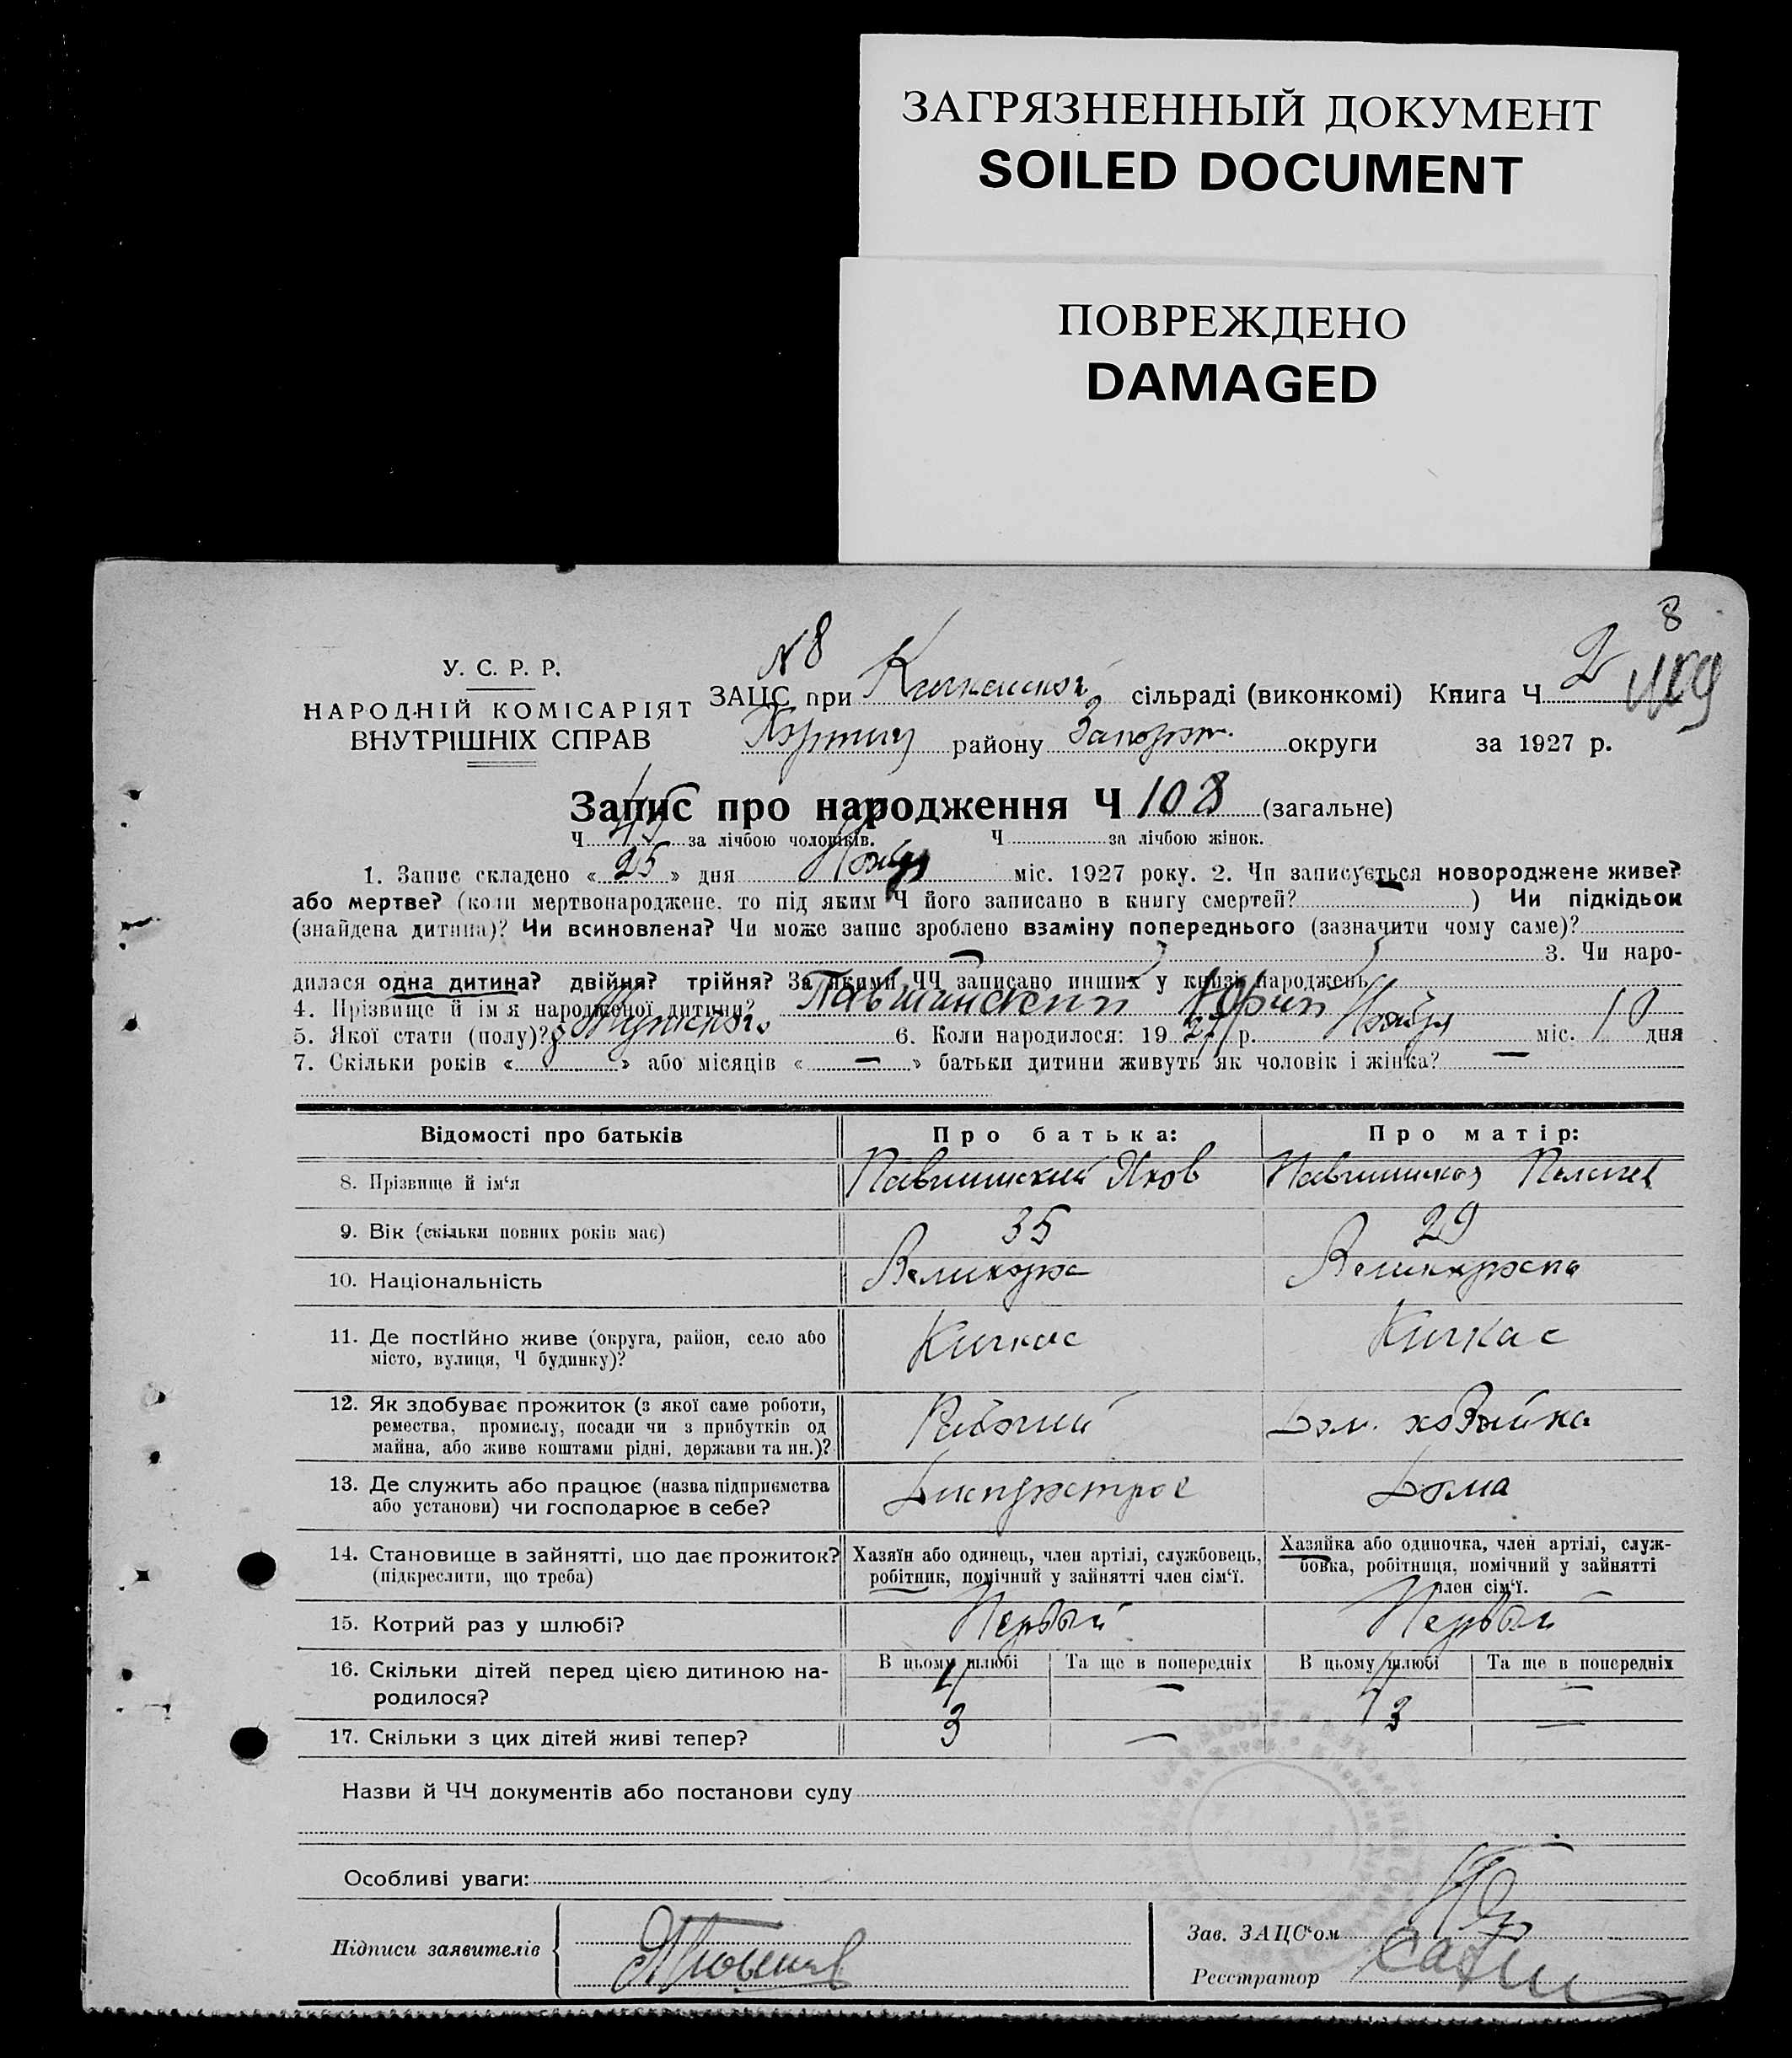 ЗАГРЯЗНЕННЫЙ ДОКУМЕНТ
SOILED DOCUMENT
ПОВРЕЖДЕНО
DAMAGED
8
У. С. Р. Р.
НАРОДНІЙ КОМІСАРІЯТ
ВНУТРІШНІХ СПРАВ
N 8
ЗАЦС при Кичкасской сільраді (виконкомі) Книга Ч 2
району Запорож. округи за 1927 р.
Запис про народження Ч 108 (загальне)
Ч 45 за лічбою чоловіків. Ч за лічбою жінок.
1. Запис складено « 25 » дня Ноября міс. 1927 року. 2. Чи записується новороджене живе?
або мертве? (коли мертвонароджене, то під яким Ч його записано в книгу смертей? ) Чи підкідьок
(знайдена дитина)? Чи всиновлена? Чи може запис зроблено взаміну попереднього (зазначити чому саме)?
— 3. Чи наро-
дилася одна дитина? двійня? трійня? За якими ЧЧ записано инших у книзі народжень
4. Прізвище й ім'я народженої дитини? Павшинский Юрий
5. Якої стати (полу)? Мужского 6. Коли народилося: 1927 р. Ноября міс. 10 дня
7. Скільки років « » або місяців « — » батьки дитини живуть як чоловік і жінка? —
Відомості про батьків Про батька: Про матір:
8. Прізвище й ім'я Павшинский Яков Павшинская Пелагея
9. Вік (скільки повних років має) 35 29
10. Національність Великорос Великороска
11. Де постійно живе (округа, район, село або
місто, вулиця, Ч будинку)? Кичкас Кичкас
12. Як здобуває прожиток (з якої саме роботи,
ремества, промислу, посади чи з прибутків од
майна, або живе коштами рідні, держави та ин.)? Рабочий Дом. хозяйка
13. Де служить або працює (назва підприємства
або установи) чи господарює в себе? Днепрострое Дома
14. Становище в зайнятті, що дає прожиток?
(підкреслити, що треба)
Хазяїн або одинець, член артілі, службовець,
робітник, помічний у зайнятті член сім'ї.
Хазяйка або одиночка, член артілі, служ-
бовка, робітниця, помічний у зайнятті
член сім'ї.
15. Котрий раз у шлюбі? Первый Первый
16. Скільки дітей перед цією дитиною на-
родилося?
В цьому шлюбі Та ще в попередніх В цьому шлюбі Та ще в попередніх
4 — 4 —
17. Скільки з цих дітей живі тепер? 3 — 3 —
Назви й ЧЧ документів або постанови суду
Особливі уваги:
Підписи заявителів
Зав. ЗАЦС'ом
Реєстратор